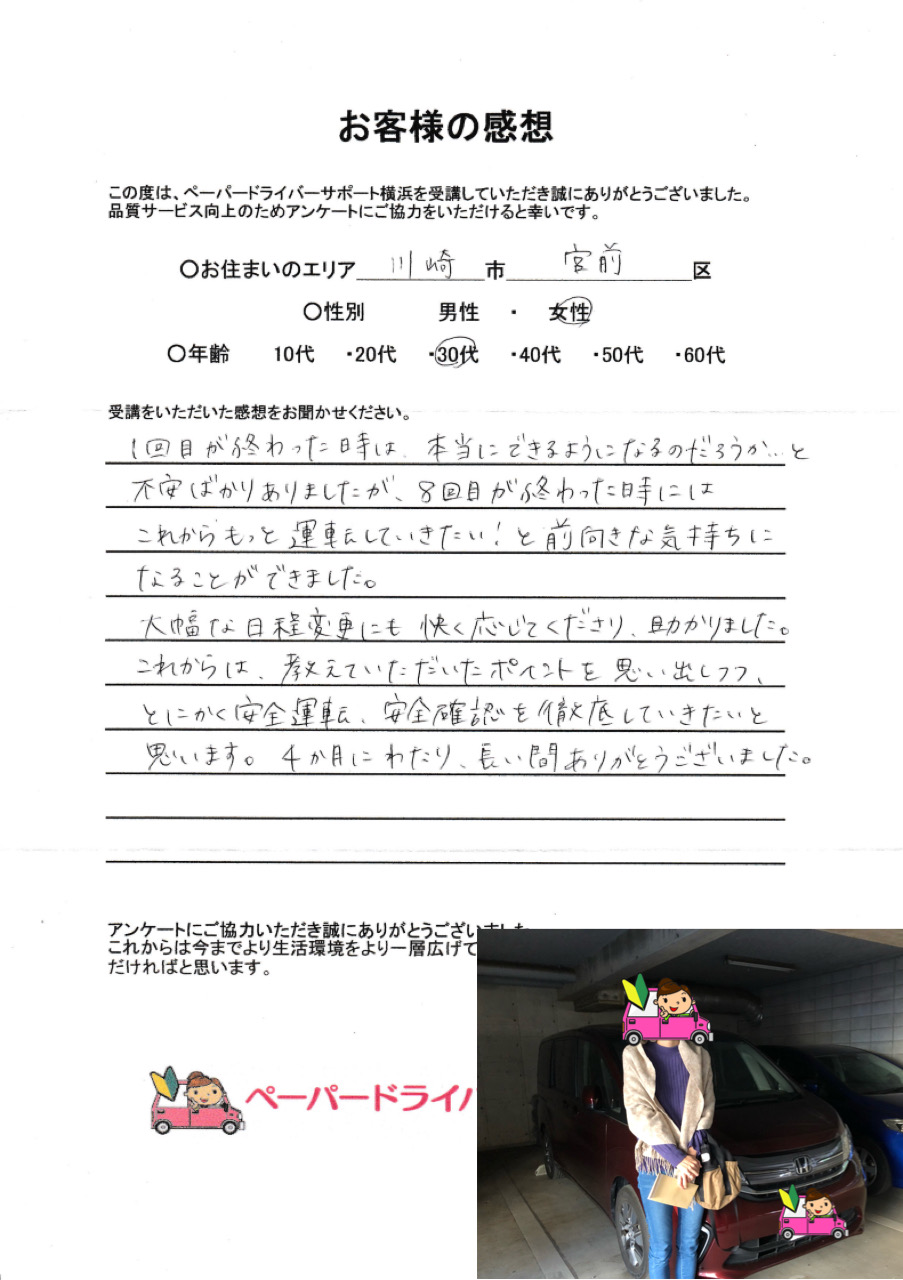 お客様の感想
この度は、ペーパードライバーサポート横浜を受講していただき誠にありがとうございました。
品質サービス向上のためアンケートにご協力をいただけると幸いです。
〇お住まいのエリア 川崎 市 宮前 区
〇性別 男性 ・ 女性
〇年齢 10代 ・20代 ・30代 ・40代 ・50代 ・60代
受講をいただいた感想をお聞かせください。
1回目が終わった時は、本当にできるようになるのだろうか…と
不安ばかりありましたが、8回目が終わった時には
これからもっと運転していきたい！と前向きな気持ちに
なることができました。
大幅な日程変更にも快く応じてくださり、助かりました。
これからは、教えていただいたポイントを思い出しつつ、
とにかく安全運転、安全確認を徹底していきたいと
思います。4か月にわたり、長い間ありがとうございました。
アンケートにご協力いただき誠にありがとうございました
これからは今までより生活環境をより一層広げて
だければと思います。
ペーパードライバ